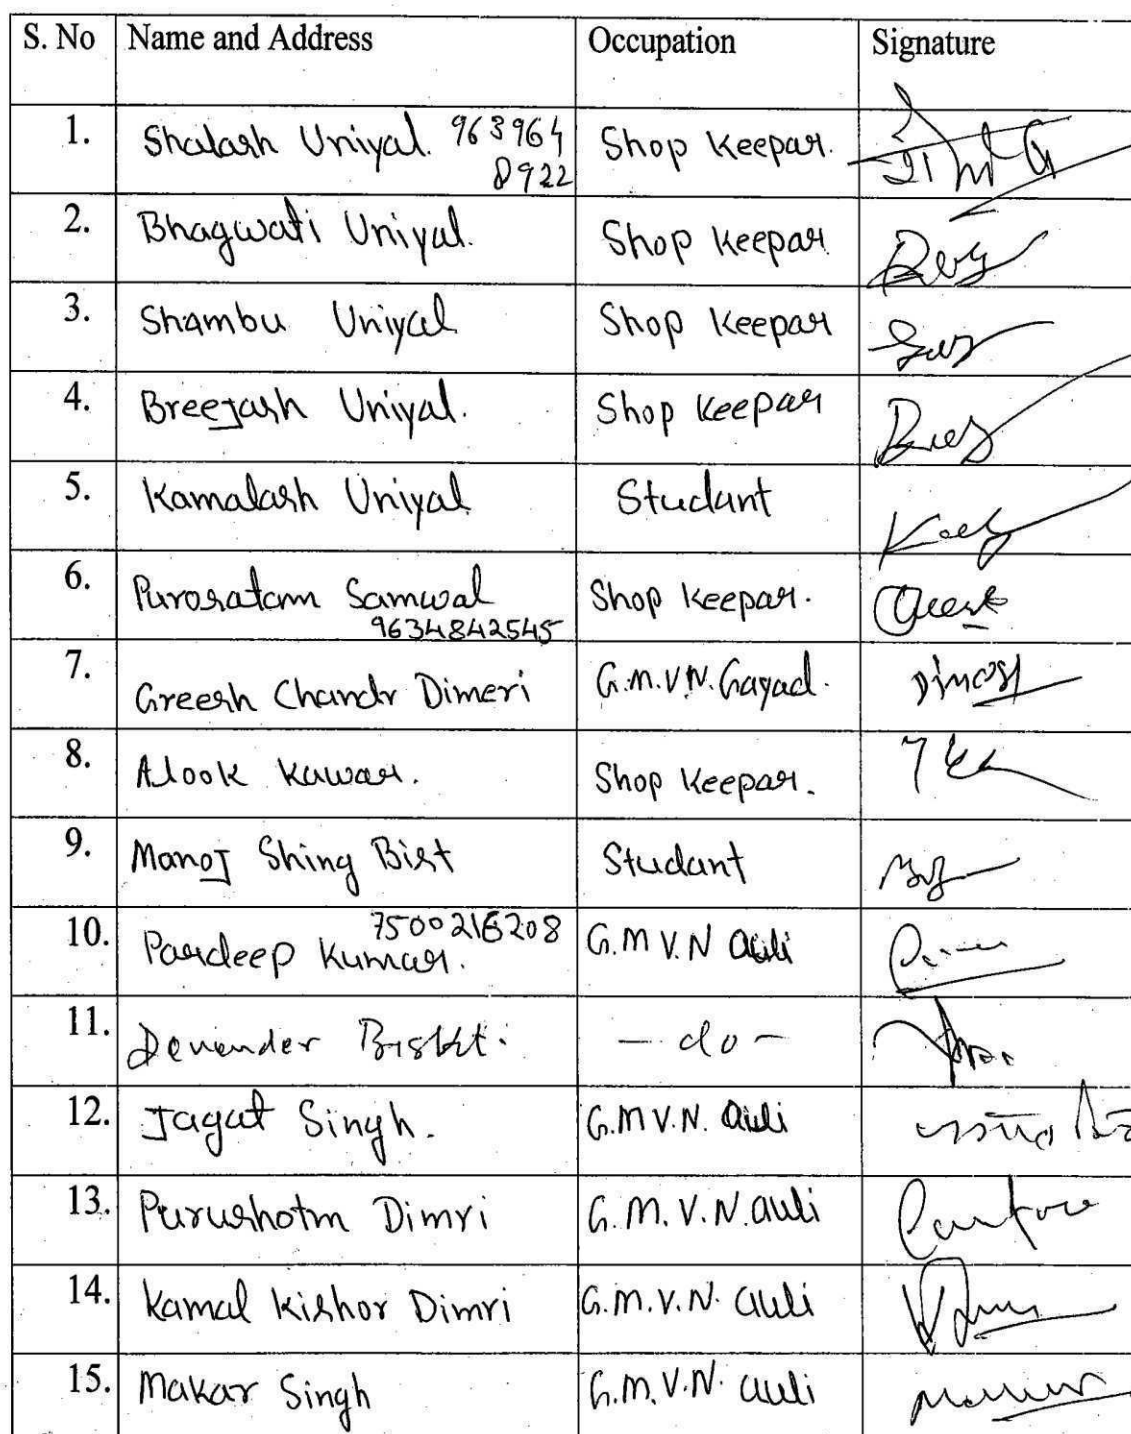 S. No Name and Address Occupation Signature
1. Shalash Uniyal. 963964 Shop Keepar.
8922
2. Bhagwati Uniyal. Shop Keepar
3. Shambu Uniyal Shop Keepar
4. Breejash Uniyal. Shop Keepar
5. Kamalash Uniyal Studant
6. Purosatam Samwal Shop Keepar.
9634842545
7. Greesh Chandr Dimeri G.M.V.N. Gayad.
8. Alook Kawar. Shop Keepar.
9. Manoj Shing Bist Studant
10. 7500216208 G.M V.N auli
Pardeep Kumar.
11. Devender Bisht. - do -
12. Jagat Singh. G.M V.N. auli
13. Purushotm Dimri G.M. V.N. auli
14. Kamal Kishor Dimri G.M.V.N. auli
15. Makar Singh G.M.V.N. auli